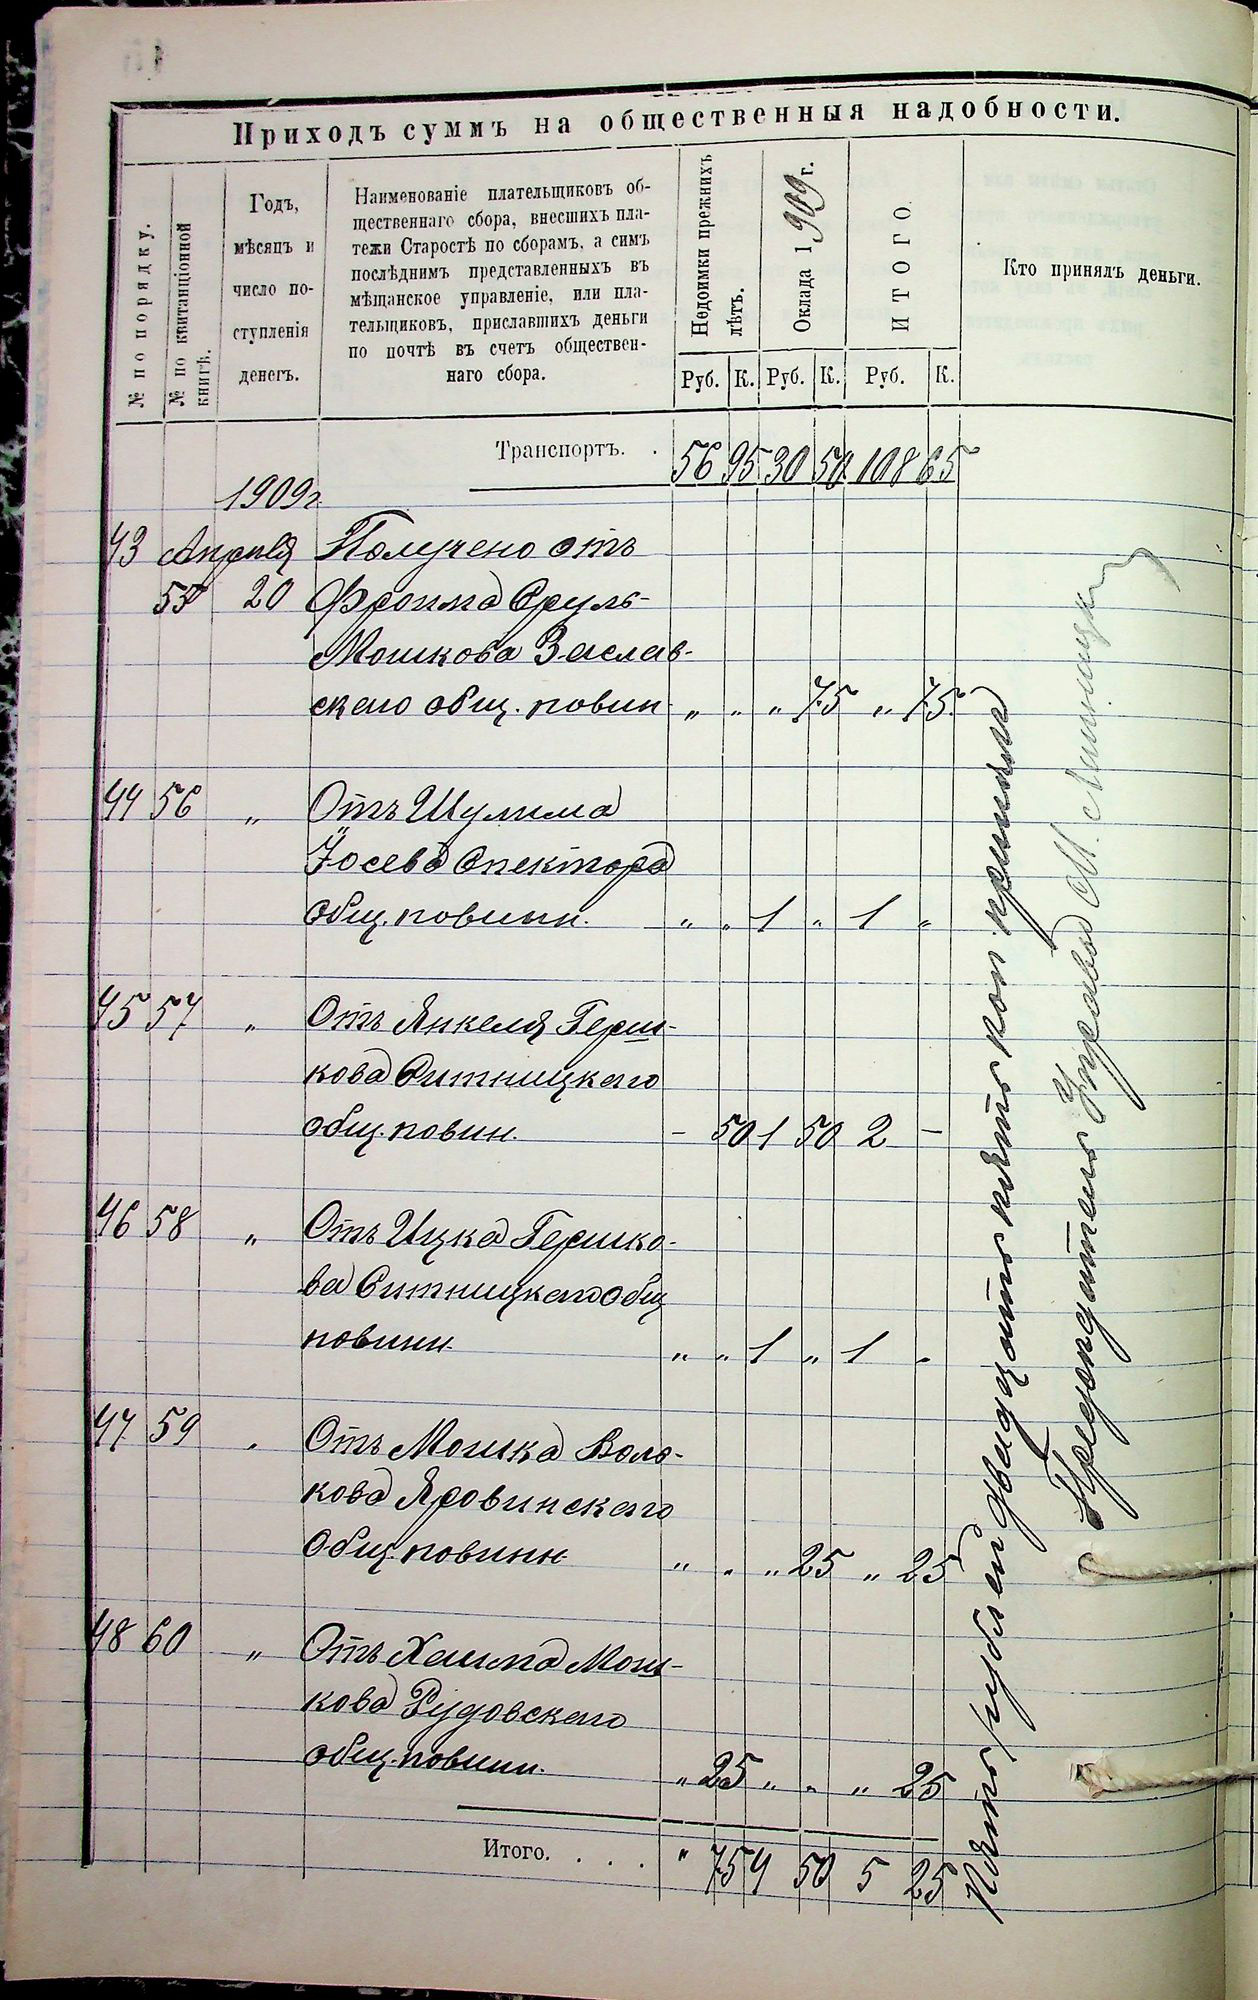 Приходъ суммъ на общественныя надобности.
№ по порядку.
№ по квитанціонной
книгѣ.
Годъ,
мѣсяцъ и
число по-
ступленія
денегъ.
Наименованіе плательщиковъ об-
щественнаго сбора, внесшихъ пла-
тежи Старостѣ по сборамъ, а симъ
послѣднимъ представленныхъ въ
мѣщанское управленіе, или пла-
тельщиковъ, приславшихъ деньги
по почтѣ въ счетъ обществен-
наго сбора.
Недоимки прежнихъ
лѣтъ.
Оклада 1909 г.
ИТОГО.
Кто принялъ деньги.
Руб. К. Руб. К. Руб. К.
Транспортъ. . 56 95 30 50 108 65
1909 г.
43 Апрѣля Получено отъ
55 20 Фроима Сруль-
Мошкова Заслав-
скаго общ. повин „ „ „ 75 „ 75
44 56 „ Отъ Шулима
Іосева Спектора
общ. повинн. „ „ 1 „ 1 „
45 57 „ Отъ Янкеля Герш-
кова Ситницкаго
общ. повин. – 50 1 50 2 –
46 58 „ Отъ Ицка Гершко-
ва Ситницкаго общ
повинн. „ „ 1 „ 1 „
47 59 „ Отъ Мошка Воль-
кова Яровинскаго
Общ. повинн. „ „ „ 25 „ 25
48 60 „ Отъ Хаима Мош-
кова Рудовскаго
общ. повинн. „ 25 „ „ „ 25
Итого. . . . . „ 75 4 50 5 25
Пять рублей двадцать пять коп принялъ
Предсѣдатель Управы М.